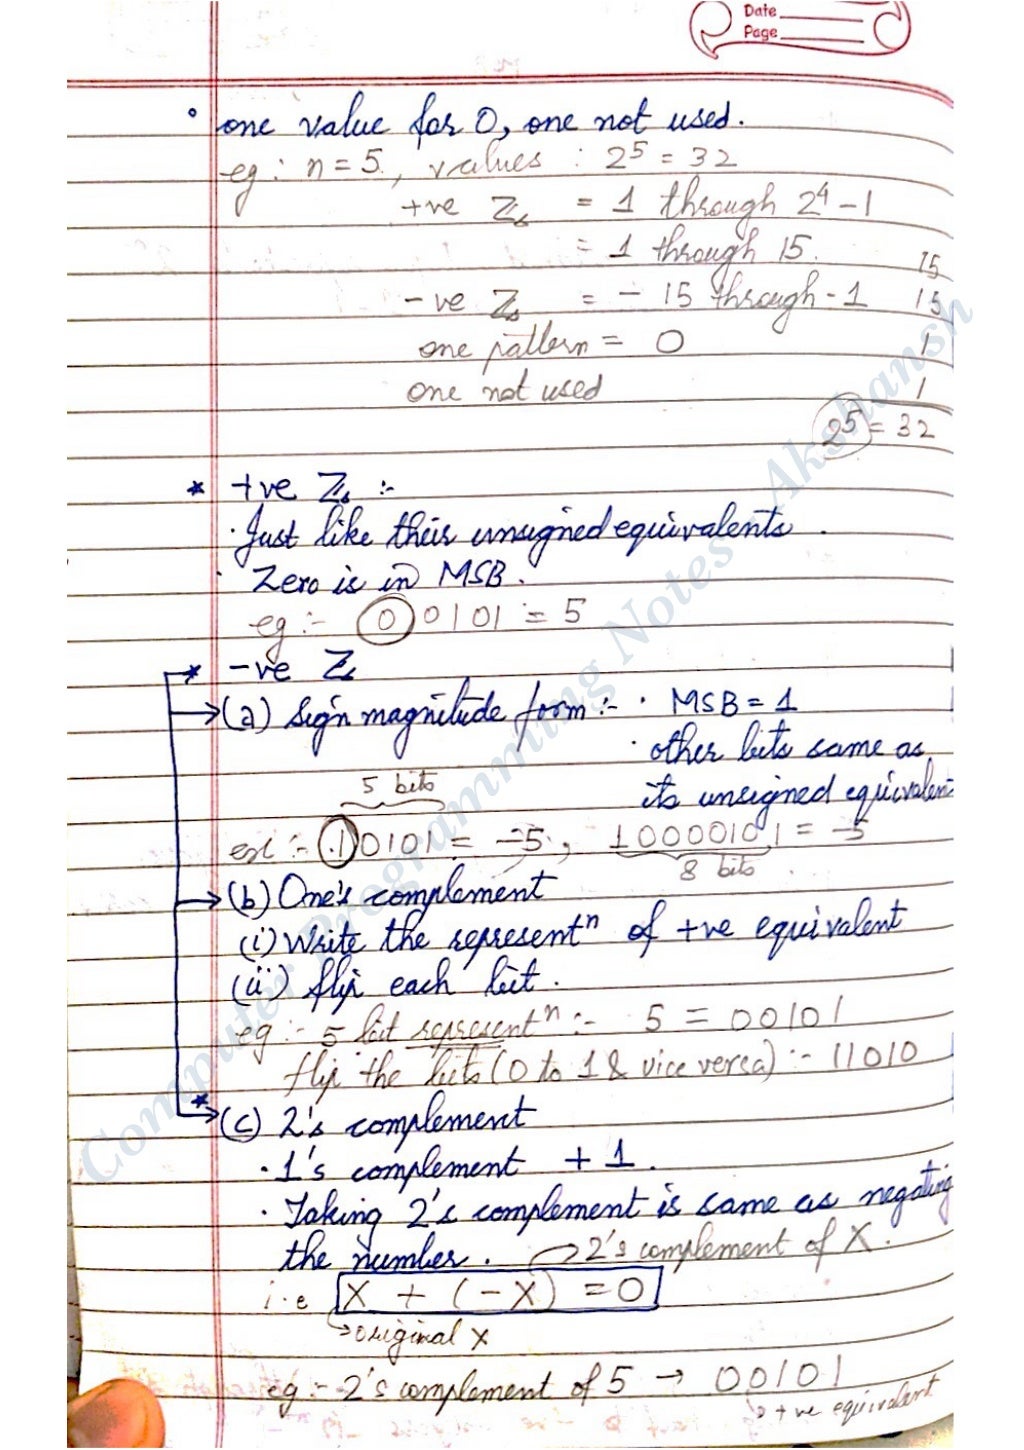 Date
Page
° one value for 0, one not used.
eg: n = 5, values : 2⁵ = 32
+ve Z = 1 through 2⁴ - 1
= 1 through 15. 15
-ve Z = - 15 through - 1 15
one pattern = 0 1
one not used 1
2⁵ = 32
* +ve Z :-
· Just like their unsigned equivalents.
· Zero is in MSB.
eg :- 00101 = 5
* -ve Z
→ (a) Sign magnitude form :- · MSB = 1
· other bits same as
its unsigned equivalent
5 bits
ex :- 10101 = -5, 10000101 = -5
8 bits
→ (b) One's complement
(i) Write the representⁿ of +ve equivalent
(ii) flip each bit.
eg :- 5 bit representⁿ :- 5 = 00101
flip the bits (0 to 1 & vice versa) :- 11010
* → (c) 2's complement
· 1's complement + 1.
· Taking 2's complement is same as negating
the number. → 2's complement of X.
i.e X + (-X) = 0
→ original X
eg :- 2's complement of 5 → 00101
→ +ve equivalent
Computer Programming Notes - Akshansh